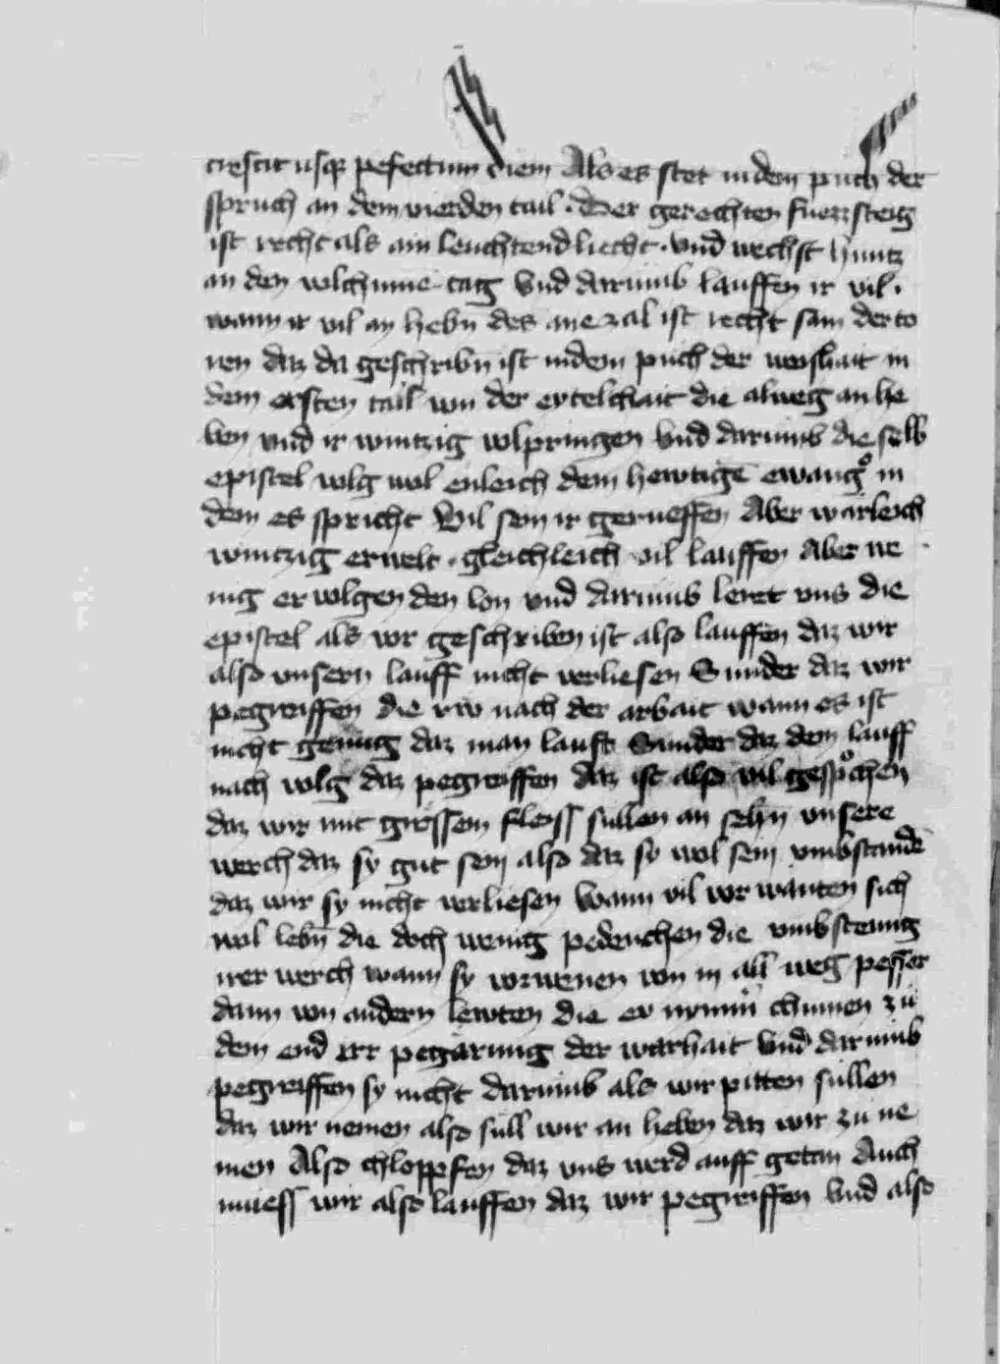 crescit usq perfectum diem Als es stet in dem puch der
spruch an dem vierden tail · Der gerechten fuezzsteig
ist recht als ain leuchtend liecht · vnd wechst huntz
an den volchume tag Vnd darumb lauffen ir vil ·
wann ir vil an hebn des anezal ist recht sam der to
ren daz da geschribn ist in dem puch der weishait in
dem ersten tail von der eytelchait die alweg an he
ben vnd ir wintzig volpringen Vnd darumb die selb
epistel volg wol enleich dem hewtige ewango in
dem es spricht Vil sein ir gerueffen Aber wärleich
wintzig erwelt · gleichleich vil lauffen Aber we
nig er volgen den lon vnd darumb leret vns die
epistel als vor geschriben ist also lauffen daz wir
also vnsern lauff nicht verliesen Sunder daz wir
pegreiffen die rw nach der arbait wann es ist
nicht genug daz man lauft Sunder daz dem lauff
nach volg daz pegreiffen daz ist also vil gesprochen
daz wir mit grossem fleiss sullen an sehn vnsere
werch daz sy gut sein also daz sy wol sein vmbstande
daz wir sy nicht verliesen Wann vil vor wänten sich
wol lebn die doch wenig pedenchen die vmbsteung
irer werch wann sy vorwenen von in all weg pesser
dann von andern lewten die er nymm chumen zu
dem end irr pegärung der warhait Vnd darumb
pegreiffen sy nicht darumb als wir pitten sullen
daz wir nemen also sull wir an heben daz wir zu ne
men Also chloppfen daz vns werd auff getan Auch
muess wir also lauffen daz wir pegreiffen Vnd also